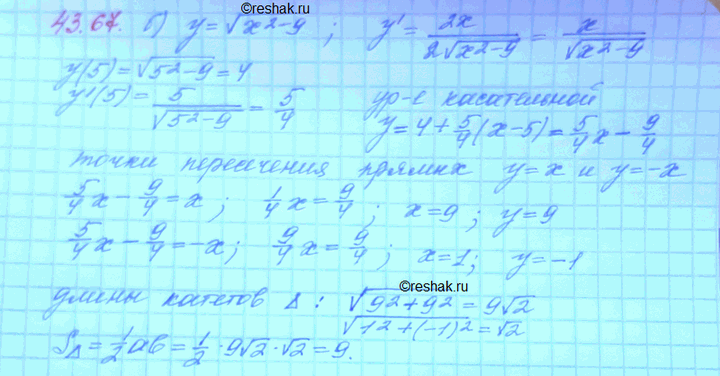 ©reshak.ru
43.67. б) y = √(x²-9) ; y' = 2x/(2√(x²-9)) = x/√(x²-9)
y(5) = √(5²-9) = 4
y'(5) = 5/√(5²-9) = 5/4 ур-е касательной
y = 4 + 5/4(x-5) = 5/4x - 9/4
точки пересечения прямых y=x и y=-x
5/4x - 9/4 = x ; 1/4x = 9/4 ; x=9 ; y=9
5/4x - 9/4 = -x ; 9/4x = 9/4 ; x=1 ; y=-1
©reshak.ru
длины катетов Δ : √(9²+9²) = 9√2
√(1²+(-1)²) = √2
S_Δ = 1/2ab = 1/2 · 9√2 · √2 = 9.